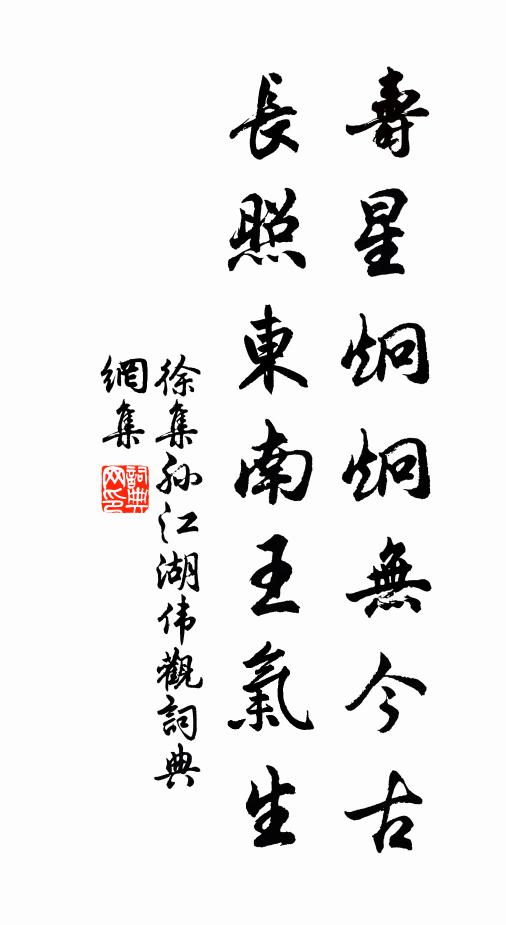 壽星炯炯無今古
長照東南王氣生
徐集孙江湖伟觀詞典
網集
詞典網印